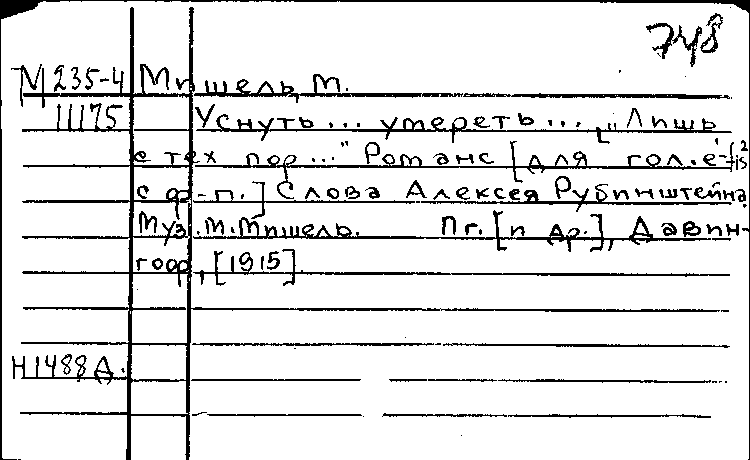 748
М 235-4 Мишель, М.
11175 Уснуть... умереть... ["Лишь
с тех пор..." Романс [для гол. e¹-fis²
с ф-п.] Слова Алексея Рубинштейна.
Муз. М. Мишель. Пг. [и др.], Давин-
гоф, [1915].
Н1488Д.